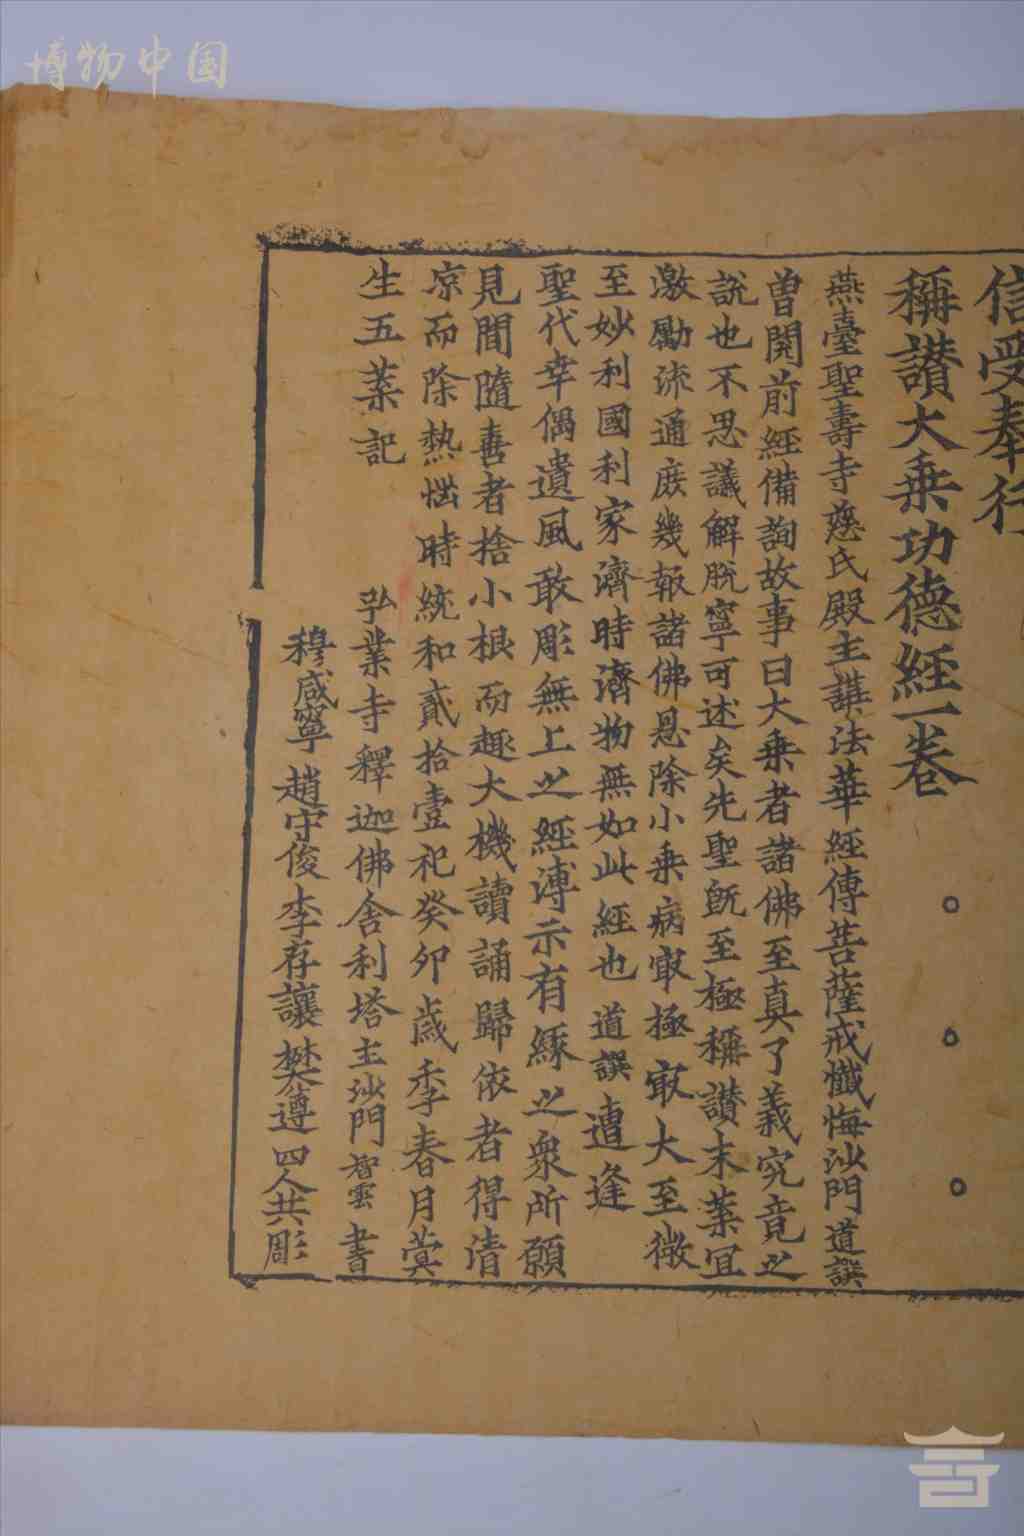 博物中国
信受奉行
稱讃大乗功德經一卷
燕臺聖壽寺慈氏殿主講法華經傳菩薩戒懺悔沙門道譔
曽閱前經備詢故事曰大乗者諸佛至真了義究竟之
說也不思議解脫寧可述矣先聖旣至極稱讃末葉冝
激勵流通庻幾報諸佛恩除小乗病㝡極㝡大至微
至妙利國利家濟時濟物無如此經也道譔遭逢
聖代幸偶遺風敢彫無上之經溥示有緣之衆所願
見聞隨喜者捨小根而趣大機讀誦歸依者得清
凉而除熱惱時統和貳拾壹祀癸卯歳季春月蓂
生五葉記
弘業寺釋迦佛舎利塔主沙門智雲書
穆咸寧趙守俊李存讓樊遵四人共彫